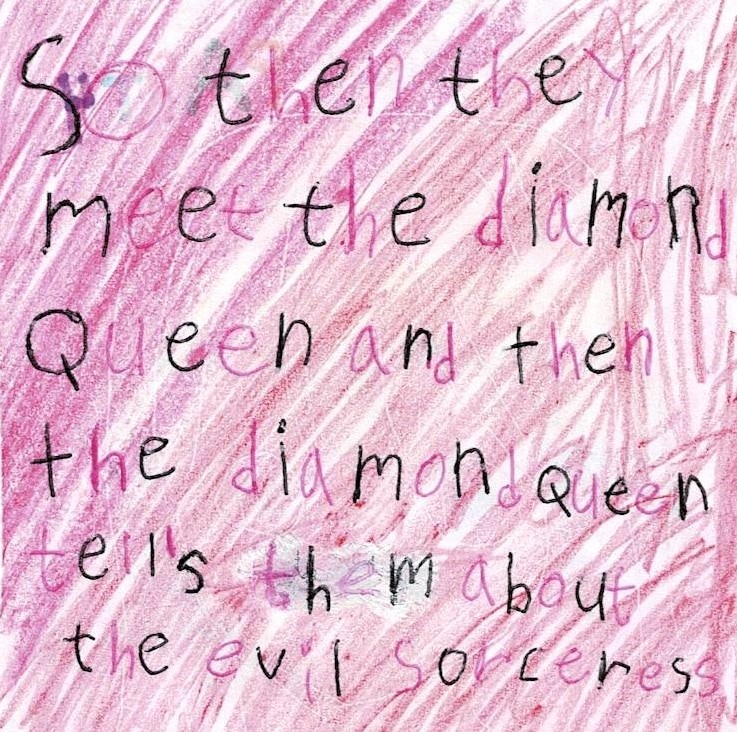 So then they
meet the diamond
Queen and then
the diamond Queen
tell's them about
the evil sorceress